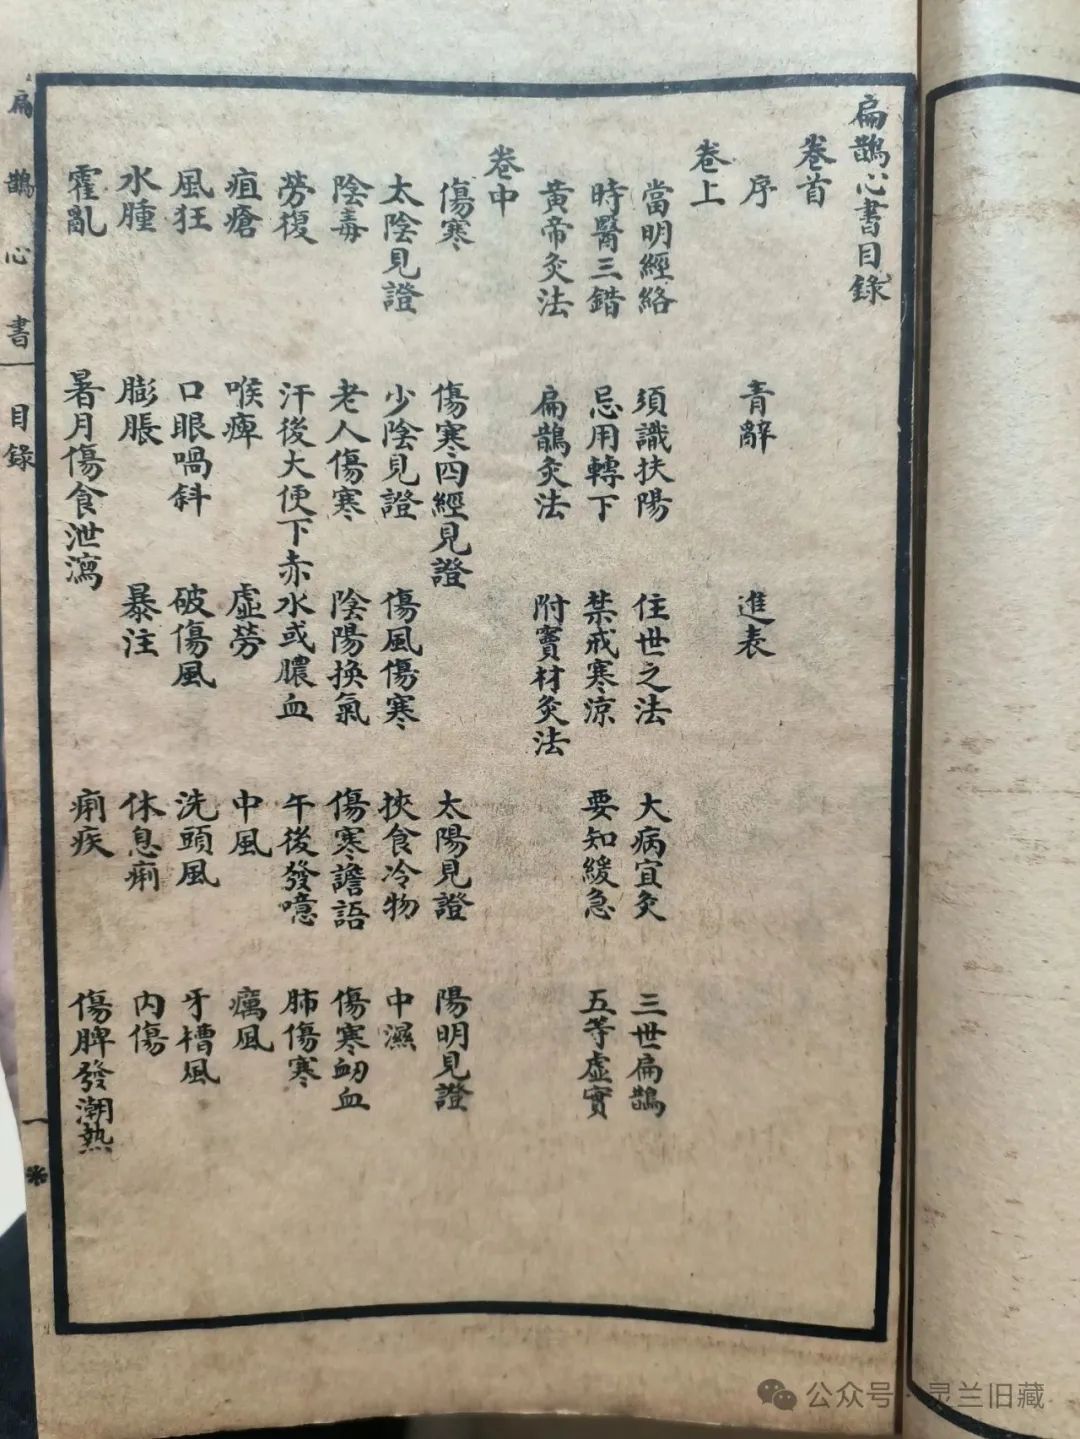 扁鵲心書目錄
卷首
序 青辭 進表
卷上
當明經絡 須識扶陽 住世之法 大病宜灸 三世扁鵲
時醫三錯 忌用轉下 禁戒寒涼 要知緩急 五等虛實
黃帝灸法 扁鵲灸法 附竇材灸法
卷中
傷寒 傷寒四經見證 太陽見證 陽明見證
太陰見證 少陰見證 傷風傷寒 挾食冷物 中濕
陰毒 老人傷寒 陰陽換氣 傷寒譫語 傷寒衂血
勞復 汗後大便下赤水或膿血 午後發噫 肺傷寒
疽瘡 喉痺 虛勞 中風 癘風
風狂 口眼喎斜 破傷風 洗頭風 牙槽風
水腫 膨脹 暴注 休息痢 內傷
霍亂 暑月傷食泄瀉 痢疾 傷脾發潮熱
扁鵲心書 目錄 一
公众号·灵兰旧藏